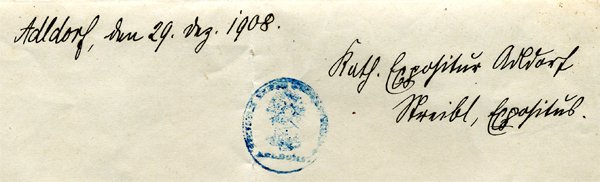 Adldorf, den 29. Dez. 1908.
Kath. Expositur Adldorf
Streibl, Expositus.